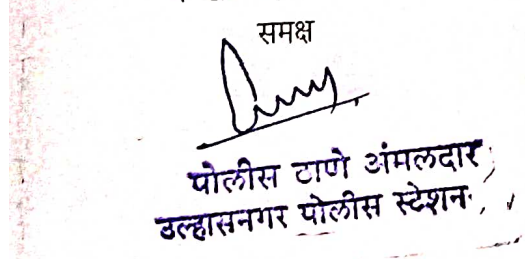 समक्ष
पोलीस ठाणे अंमलदार,
उल्हासनगर पोलीस स्टेशन.